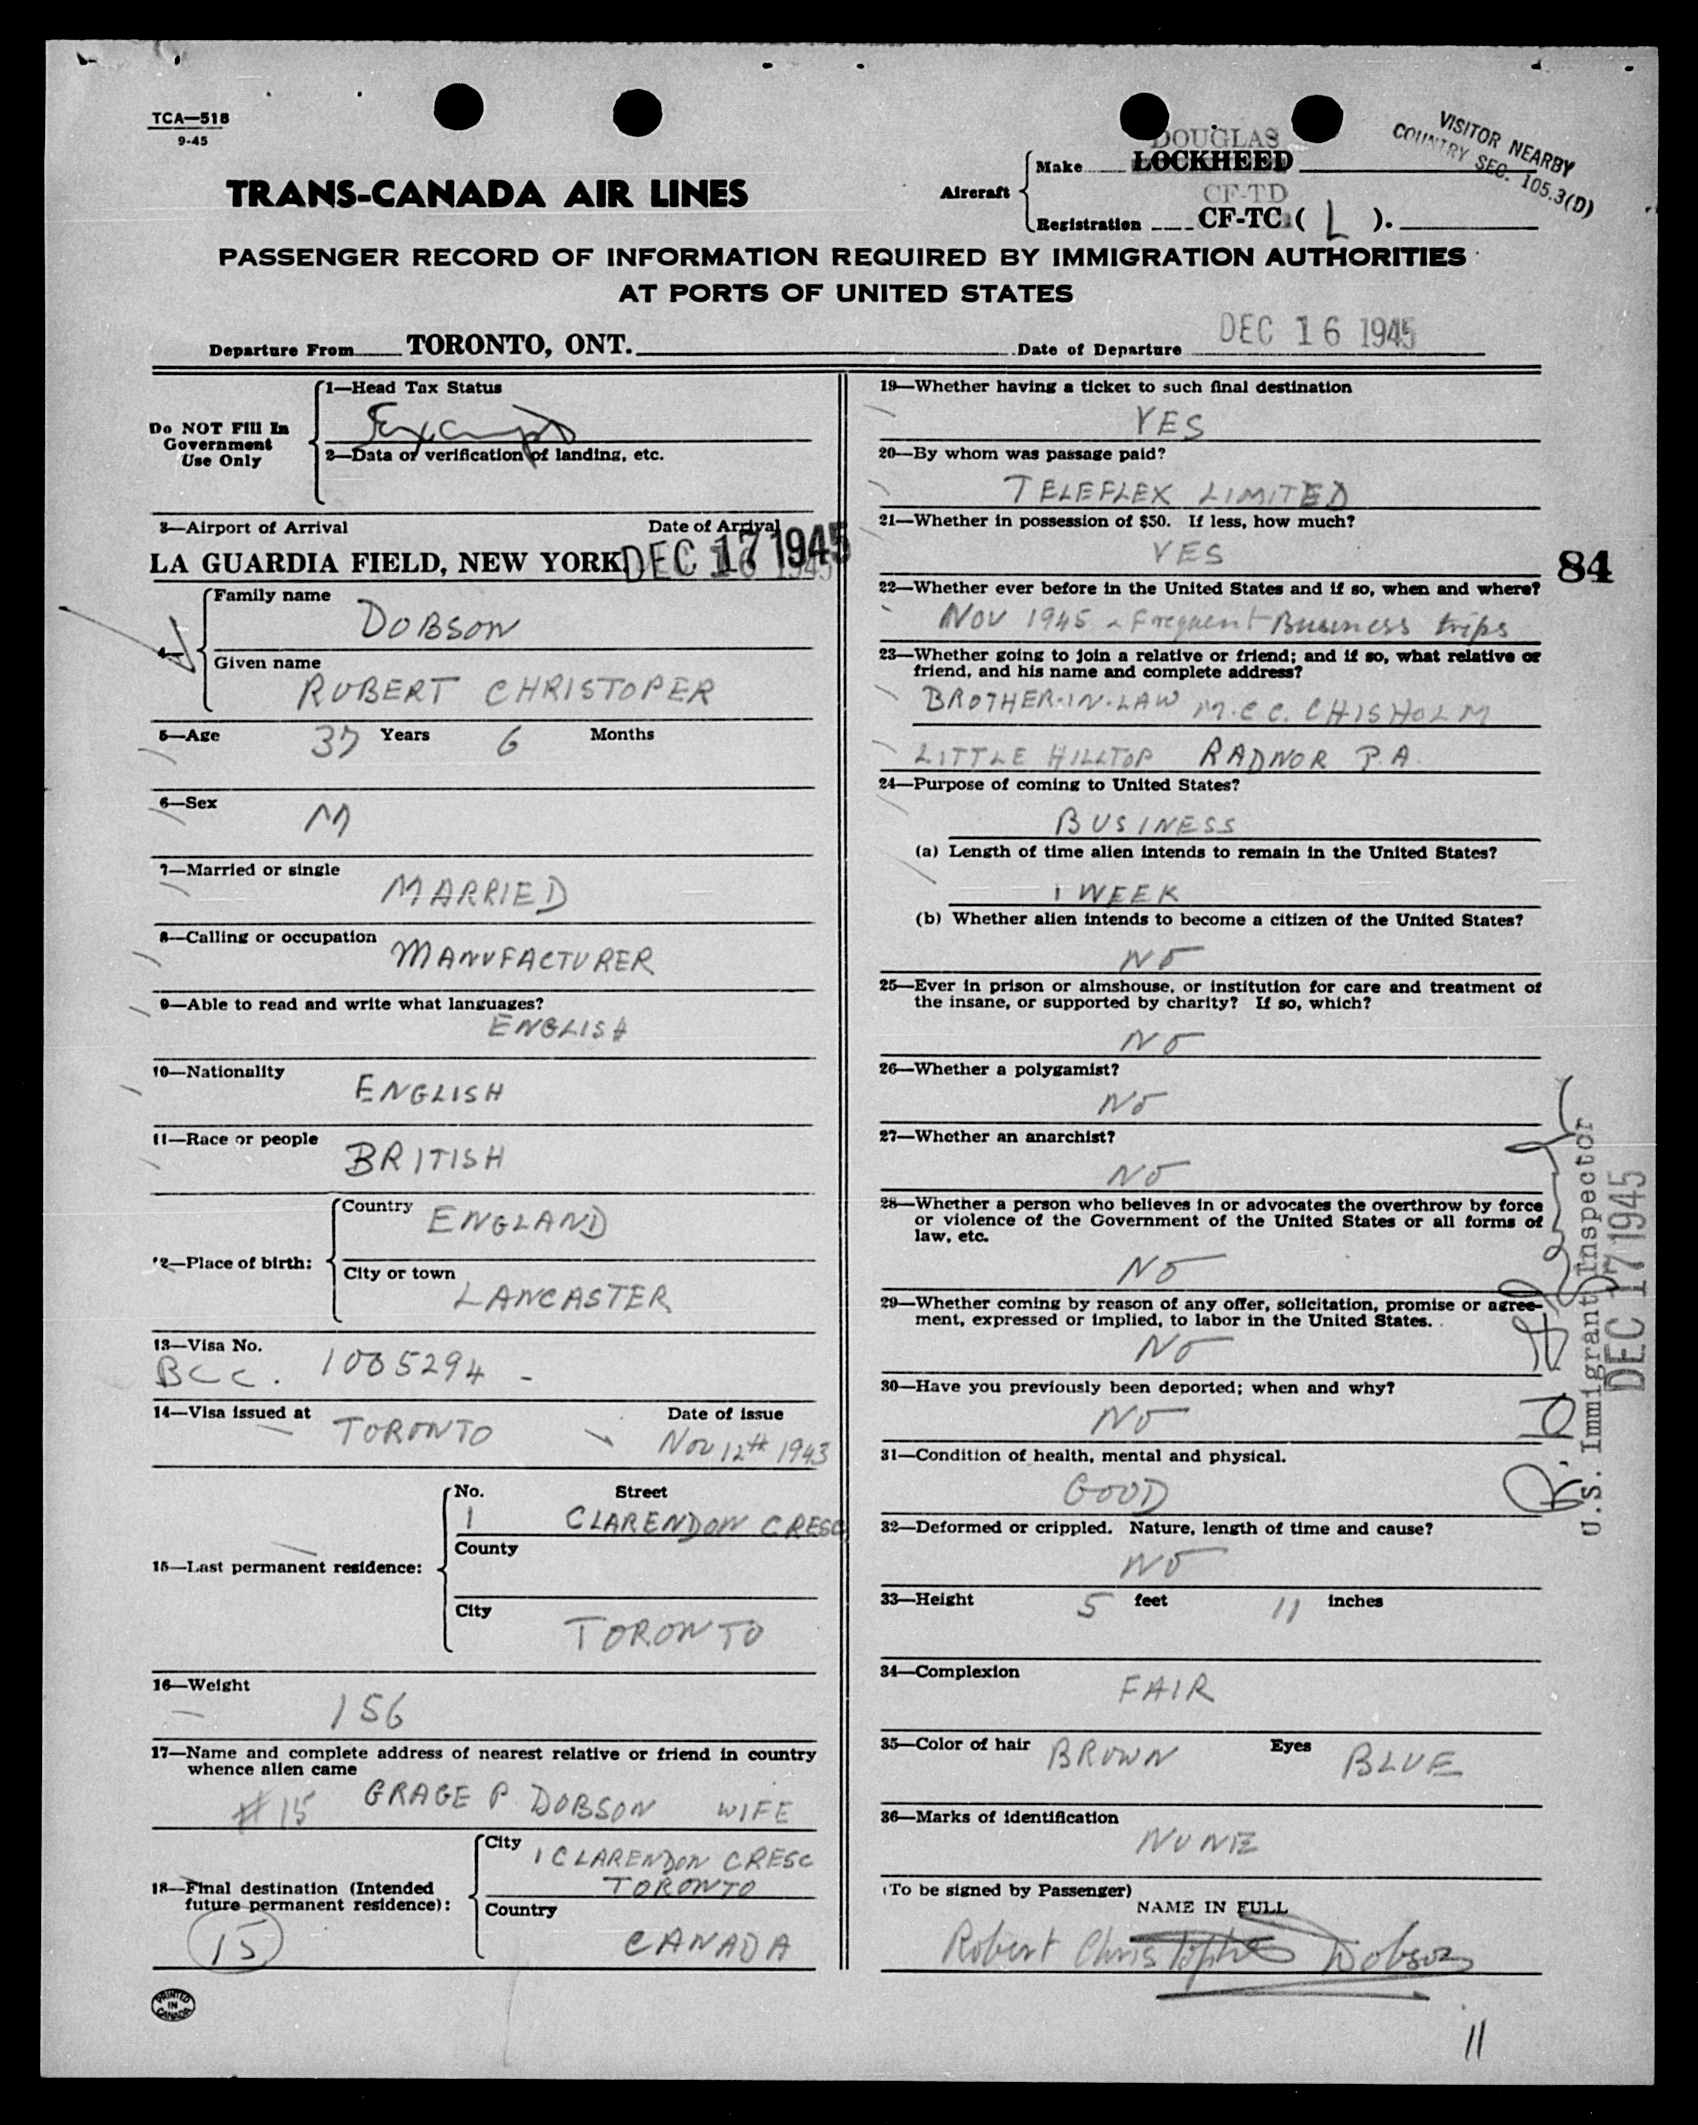 TCA—518
9-45
VISITOR NEARBY
COUNTRY SEC. 105.3(D)
TRANS-CANADA AIR LINES
Aircraft
DOUGLAS
Make LOCKHEED
CF-TD
Registration CF-TC ( L ).
PASSENGER RECORD OF INFORMATION REQUIRED BY IMMIGRATION AUTHORITIES
AT PORTS OF UNITED STATES
Departure From TORONTO, ONT. Date of Departure DEC 16 1945
Do NOT Fill In
Government
Use Only
1—Head Tax Status
Exempt
2—Data or verification of landing, etc.
3—Airport of Arrival Date of Arrival
LA GUARDIA FIELD, NEW YORK DEC 17 1945
4—
Family name
DOBSON
Given name
ROBERT CHRISTOPER
5—Age 37 Years 6 Months
6—Sex
M
7—Married or single
MARRIED
8—Calling or occupation
MANUFACTURER
9—Able to read and write what languages?
ENGLISH
10—Nationality
ENGLISH
11—Race or people
BRITISH
12—Place of birth:
Country
ENGLAND
City or town
LANCASTER
13—Visa No.
BCC. 1005294 -
14—Visa issued at Date of issue
TORONTO Nov 12th 1943
15—Last permanent residence:
No. Street
1 CLARENDON CRESC
County
City
TORONTO
16—Weight
156
17—Name and complete address of nearest relative or friend in country
whence alien came
#15 GRACE P DOBSON WIFE
18—Final destination (Intended
future permanent residence):
15
City 1 CLARENDON CRESC
TORONTO
Country
CANADA
PRINTED
IN
CANADA
19—Whether having a ticket to such final destination
YES
20—By whom was passage paid?
TELEFLEX LIMITED
21—Whether in possession of $50. If less, how much?
YES
84
22—Whether ever before in the United States and if so, when and where?
NOV 1945 - Frequent Business trips
23—Whether going to join a relative or friend; and if so, what relative or
friend, and his name and complete address?
BROTHER-IN-LAW M.C C. CHISHOLM
LITTLE HILLTOP RADNOR P.A.
24—Purpose of coming to United States?
BUSINESS
(a) Length of time alien intends to remain in the United States?
1 WEEK
(b) Whether alien intends to become a citizen of the United States?
NO
25—Ever in prison or almshouse, or institution for care and treatment of
the insane, or supported by charity? If so, which?
NO
26—Whether a polygamist?
NO
27—Whether an anarchist?
NO
28—Whether a person who believes in or advocates the overthrow by force
or violence of the Government of the United States or all forms of
law, etc.
NO
29—Whether coming by reason of any offer, solicitation, promise or agree-
ment, expressed or implied, to labor in the United States.
NO
30—Have you previously been deported; when and why?
NO
31—Condition of health, mental and physical.
GOOD
32—Deformed or crippled. Nature, length of time and cause?
NO
33—Height 5 feet 11 inches
34—Complexion
FAIR
35—Color of hair BROWN Eyes BLUE
36—Marks of identification
NONE
(To be signed by Passenger)
NAME IN FULL
Robert Christopher Dobson
U.S. Immigrant Inspector
DEC 17 1945
11